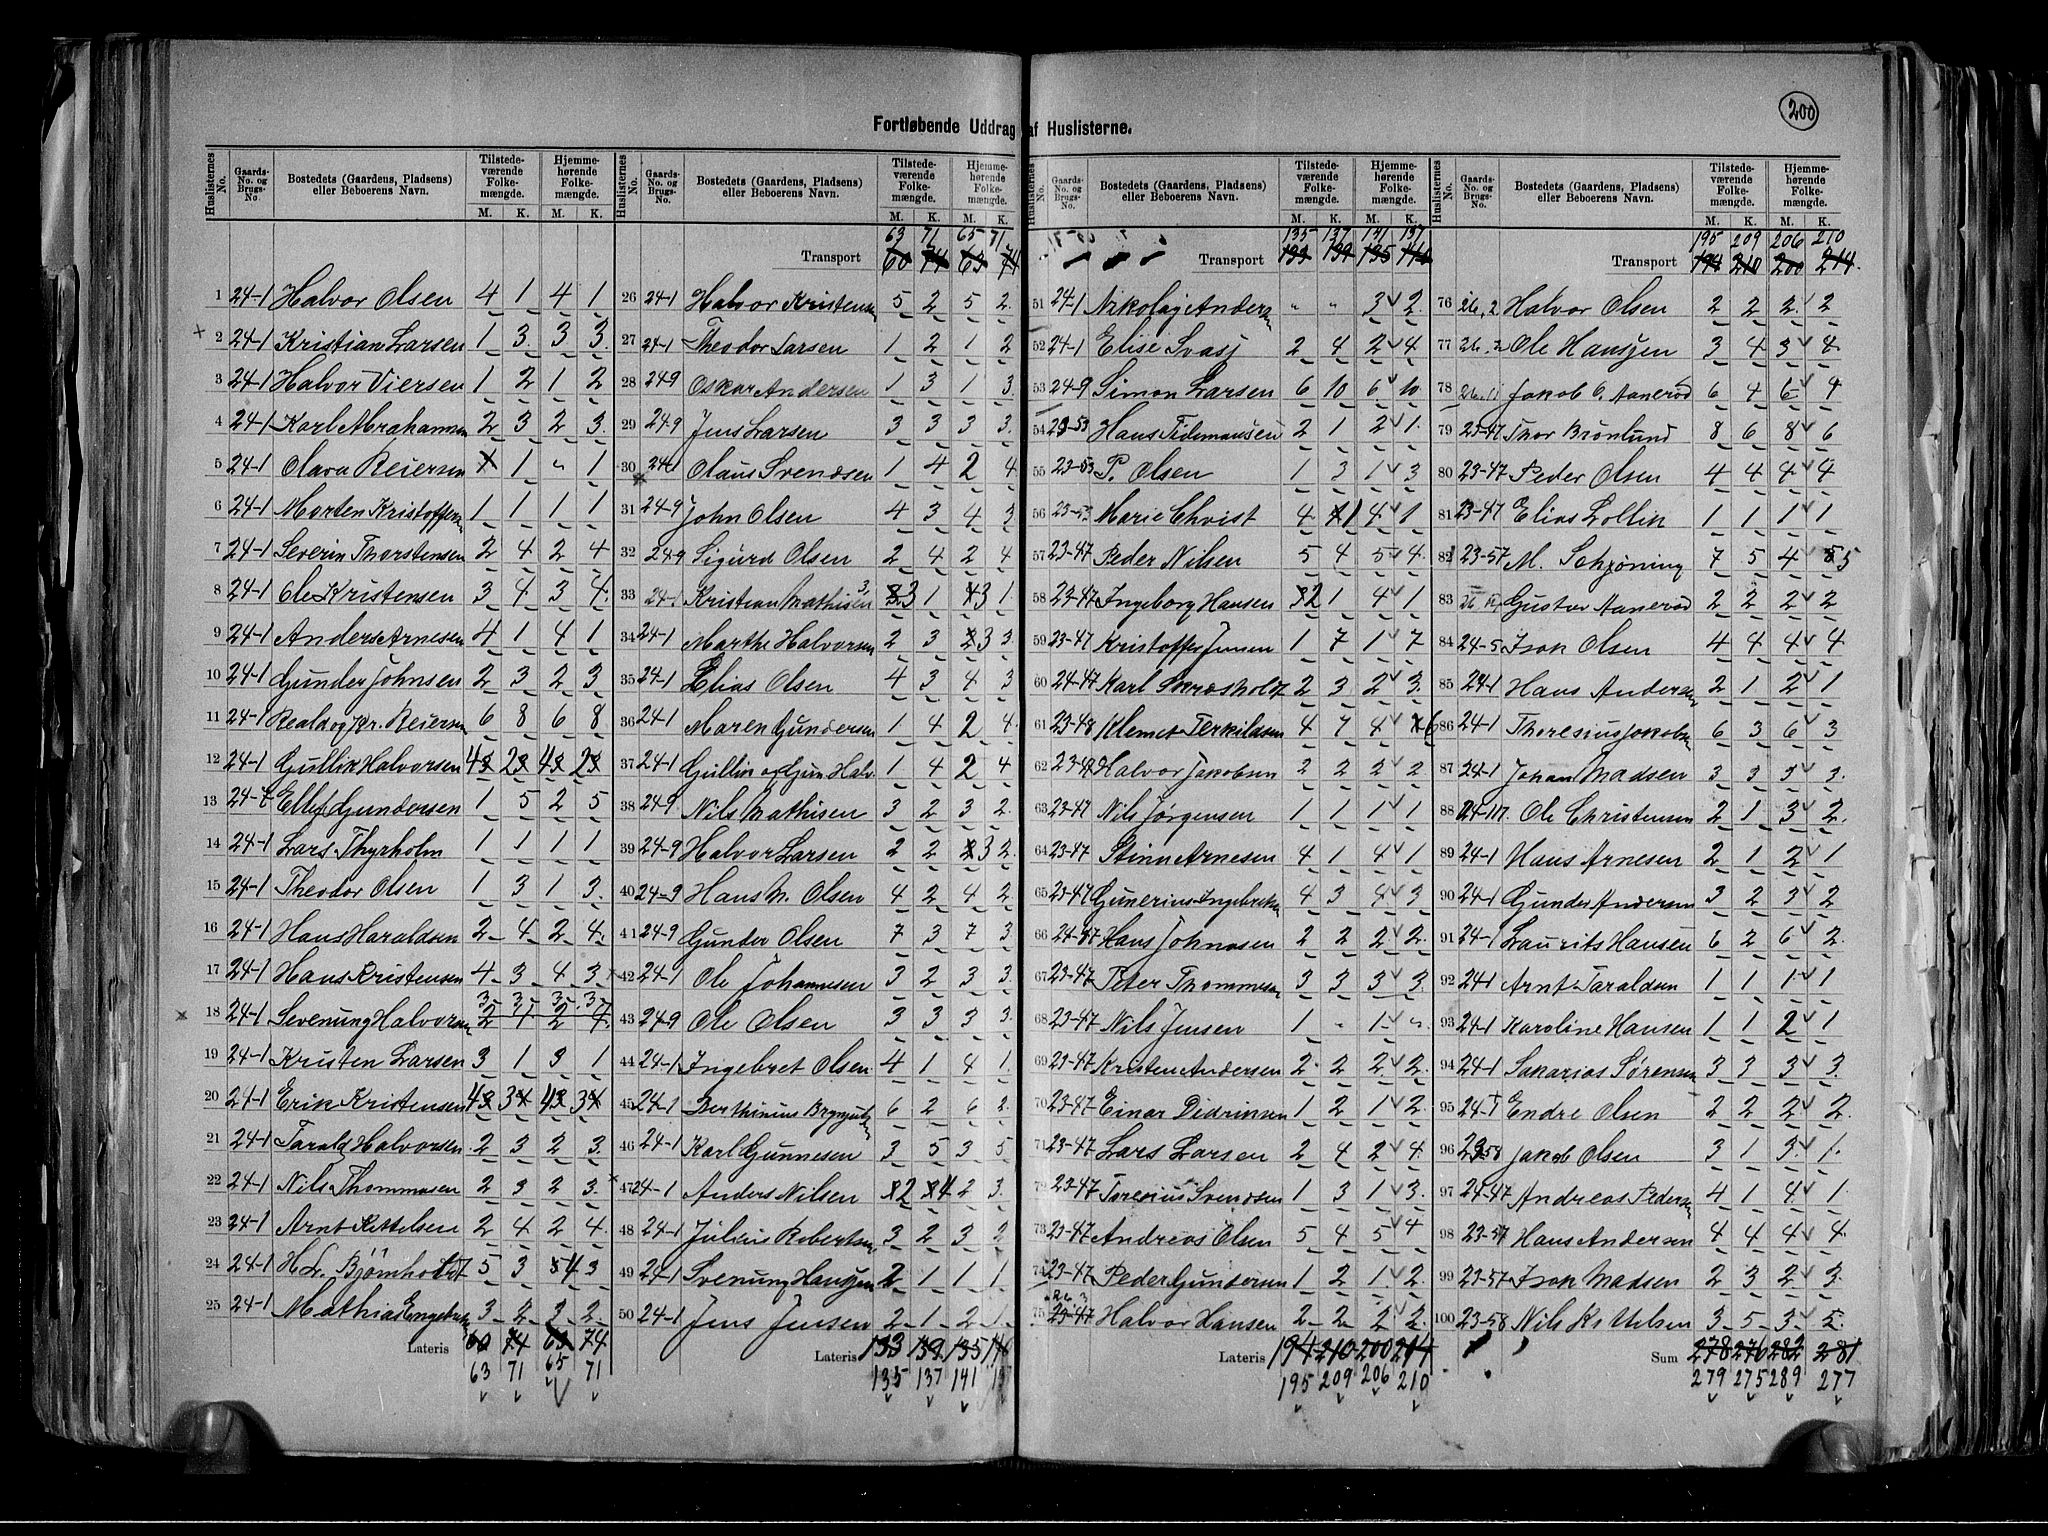 200
Fortløbende Uddrag af Huslisterne.
Huslisternes No.
Gaards-No. og Brugs-No.
Bostedets (Gaardens, Pladsens) eller Beboerens Navn.
Tilstedeværende Folkemængde.
Hjemmehørende Folkemængde.
M. K. M. K.
1 24-1 Halvor Olsen 4 1 4 1
2 24-1 Kristian Larsen 1 3 3 3
3 24-1 Halvor Viersen 1 2 1 2
4 24-1 Karl Abrahamsen 2 3 2 3
5 24-1 Olava Reiersen 1 1
6 24-1 Morten Kristoffersen 1 1 1 1
7 24-1 Severin Thorstensen 2 4 2 4
8 24-1 Ole Kristensen 3 4 3 4
9 24-1 Anders Arnesen 4 1 4 1
10 24-1 Gunder Johnsen 2 3 2 3
11 24-1 Reald og Kr. Reiersen 6 8 6 8
12 24-1 Gullik Halvorsen 4 2 4 2
13 24-7 Ellef Gundersen 1 5 2 5
14 24-1 Lars Thyrholm 1 1 1 1
15 24-1 Theodor Olsen 1 3 1 3
16 24-1 Hans Haraldsen 2 4 2 4
17 24-1 Hans Kristensen 4 3 4 3
18 24-1 Sevenung Halvorsen 3 3 3 3
19 24-1 Kristen Larsen 3 1 3 1
20 24-1 Erik Kristensen 4 3 4 3
21 24-1 Tarald Halvorsen 2 3 2 3
22 24-1 Nils Thommasen 2 3 2 3
23 24-1 Arnt Kittelsen 2 4 2 4
24 24-1 H. L. Bjømholdt 5 3 4 3
25 24-1 Mathias Engebretsen 3 2 3 2
Lateris 60 74 63 74
63 71 65 71
63 71 65 71
Transport 60 74 63 74
26 24-1 Halvor Kristensen 5 2 5 2
27 24-1 Theodor Larsen 1 2 1 2
28 24-9 Oskar Andersen 1 3 1 3
29 24-9 Jens Larsen 3 3 3 3
30 24-1 Olaus Svendsen 1 4 2 4
31 24-9 John Olsen 4 3 4 3
32 24-9 Sigurd Olsen 2 4 2 4
33 24-1 Kristian Mathisen 3 1 3 1
34 24-1 Marthe Halvorsen 2 3 3 3
35 24-1 Elias Olsen 4 3 4 3
36 24-1 Maren Gundersen 1 4 2 4
37 24-1 Gullik og Gun. Halv. 1 4 2 4
38 24-9 Nils Mathisen 3 2 3 2
39 24-9 Halvor Larsen 2 2 3 2
40 24-9 Hans M. Olsen 4 2 4 2
41 24-9 Gunder Olsen 7 3 7 3
42 24-1 Ole Johannesen 3 2 3 3
43 24-9 Ole Olsen 3 3 3 3
44 24-1 Ingebret Olsen 4 1 4 1
45 24-1 Berthinius 6 2 6 2
46 24-1 Karl Gunnesen 3 5 3 5
47 24-1 Anders Nilsen 2 4 2 3
48 24-1 Julius Robertsen 3 2 3 2
49 24-1 Svenung Hansen 2 1 1 1
50 24-1 Jens Jensen 2 1 2 1
Lateris 133 139 135 140
135 137 141
135 137 141 137
Transport 133 139 135 140
51 24-1 Nikolaj Andersen " " 3 2
52 24-1 Elise 2 4 2 4
53 24-9 Simon Larsen 6 10 6 10
54 23-53 Hans Tidemansen 2 1 2 1
55 23-53 P. Olsen 1 3 1 3
56 23-53 Marie Christ 4 1 4 1
57 23-47 Peder Nilsen 5 4 5 4
58 23-47 Ingeborg Hansen 2 1 4 1
59 23-47 Kristoffer Jensen 1 7 1 7
60 24-47 Karl 2 3 2 3
61 23-48 Klemet Terkildsen 4 7 4 6
62 Halvor Jakobsen 2 2 2 2
63 23-47 Nils Jørgensen 1 1 1 1
64 23-47 Stinn Arnesen 4 1 4 1
65 23-47 Gunerius Ingebretsen 4 3 4 3
66 Hans Johnasen 2 2 2 2
67 23-47 Peter Thommesen 3 3 3 3
68 23-47 Nils Jensen 1 - 1 "
69 23-47 Kristen Andersen 2 2 2 2
70 23-47 Einar Didriksen 1 2 1 2
71 23-47 Lars Larsen 2 4 2 4
72 23-47 Toresius Svendsen 1 3 1 3
73 23-47 Andreas Olsen 5 4 5 4
74 23-47 Peder Gundersen 1 2 1 2
75 23-47 Halvor Hansen 2 2 2 2
Lateris 194 210 200 214
195 209 206 210
195 209 206 210
Transport 194 210 200 214
76 26,2 Halvor Olsen 2 2 2 2
77 26,2 Ole Hansen 3 4 3 4
78 Jakob O. Aanerød 6 4 6 4
79 23-47 Thor Brönlund 8 6 8 6
80 23-47 Peder Olsen 4 4 4 4
81 23-47 Elias Lollik 1 1 1 1
82 23-57 M. Schjöning 7 5 4 5
83 Gustav Aanerød 2 2 2 2
84 24-5 Isak Olsen 4 4 4 4
85 24-1 Hans Andersen 2 1 2 1
86 24-1 Thoresius Jakobsen 6 3 6 3
87 24-1 Johan Madsen 3 3 3 3
88 Ole Christensen 2 1 3 2
89 24-1 Hans Arnesen 2 1 2 1
90 24-1 Gunder Andersen 3 2 3 2
91 24-1 Laurits Hansen 6 2 6 2
92 24-1 Arnt Taraldsen 1 1 1 1
93 24-1 Karoline Hansen 1 1 2 1
94 24-1 Sakarias Sørensen 3 3 3 3
95 24-1 Endre Olsen 2 2 2 2
96 Jakob Olsen 3 1 3 1
97 24-47 Andreas Pedersen 4 1 4 1
98 23-57 Hans Andersen 4 4 4 4
99 23-57 Isak Madsen 2 3 2 3
100 23-58 Nils Kittilsen 3 5 3 5
Sum 278 276 282 281
279 275 289 277